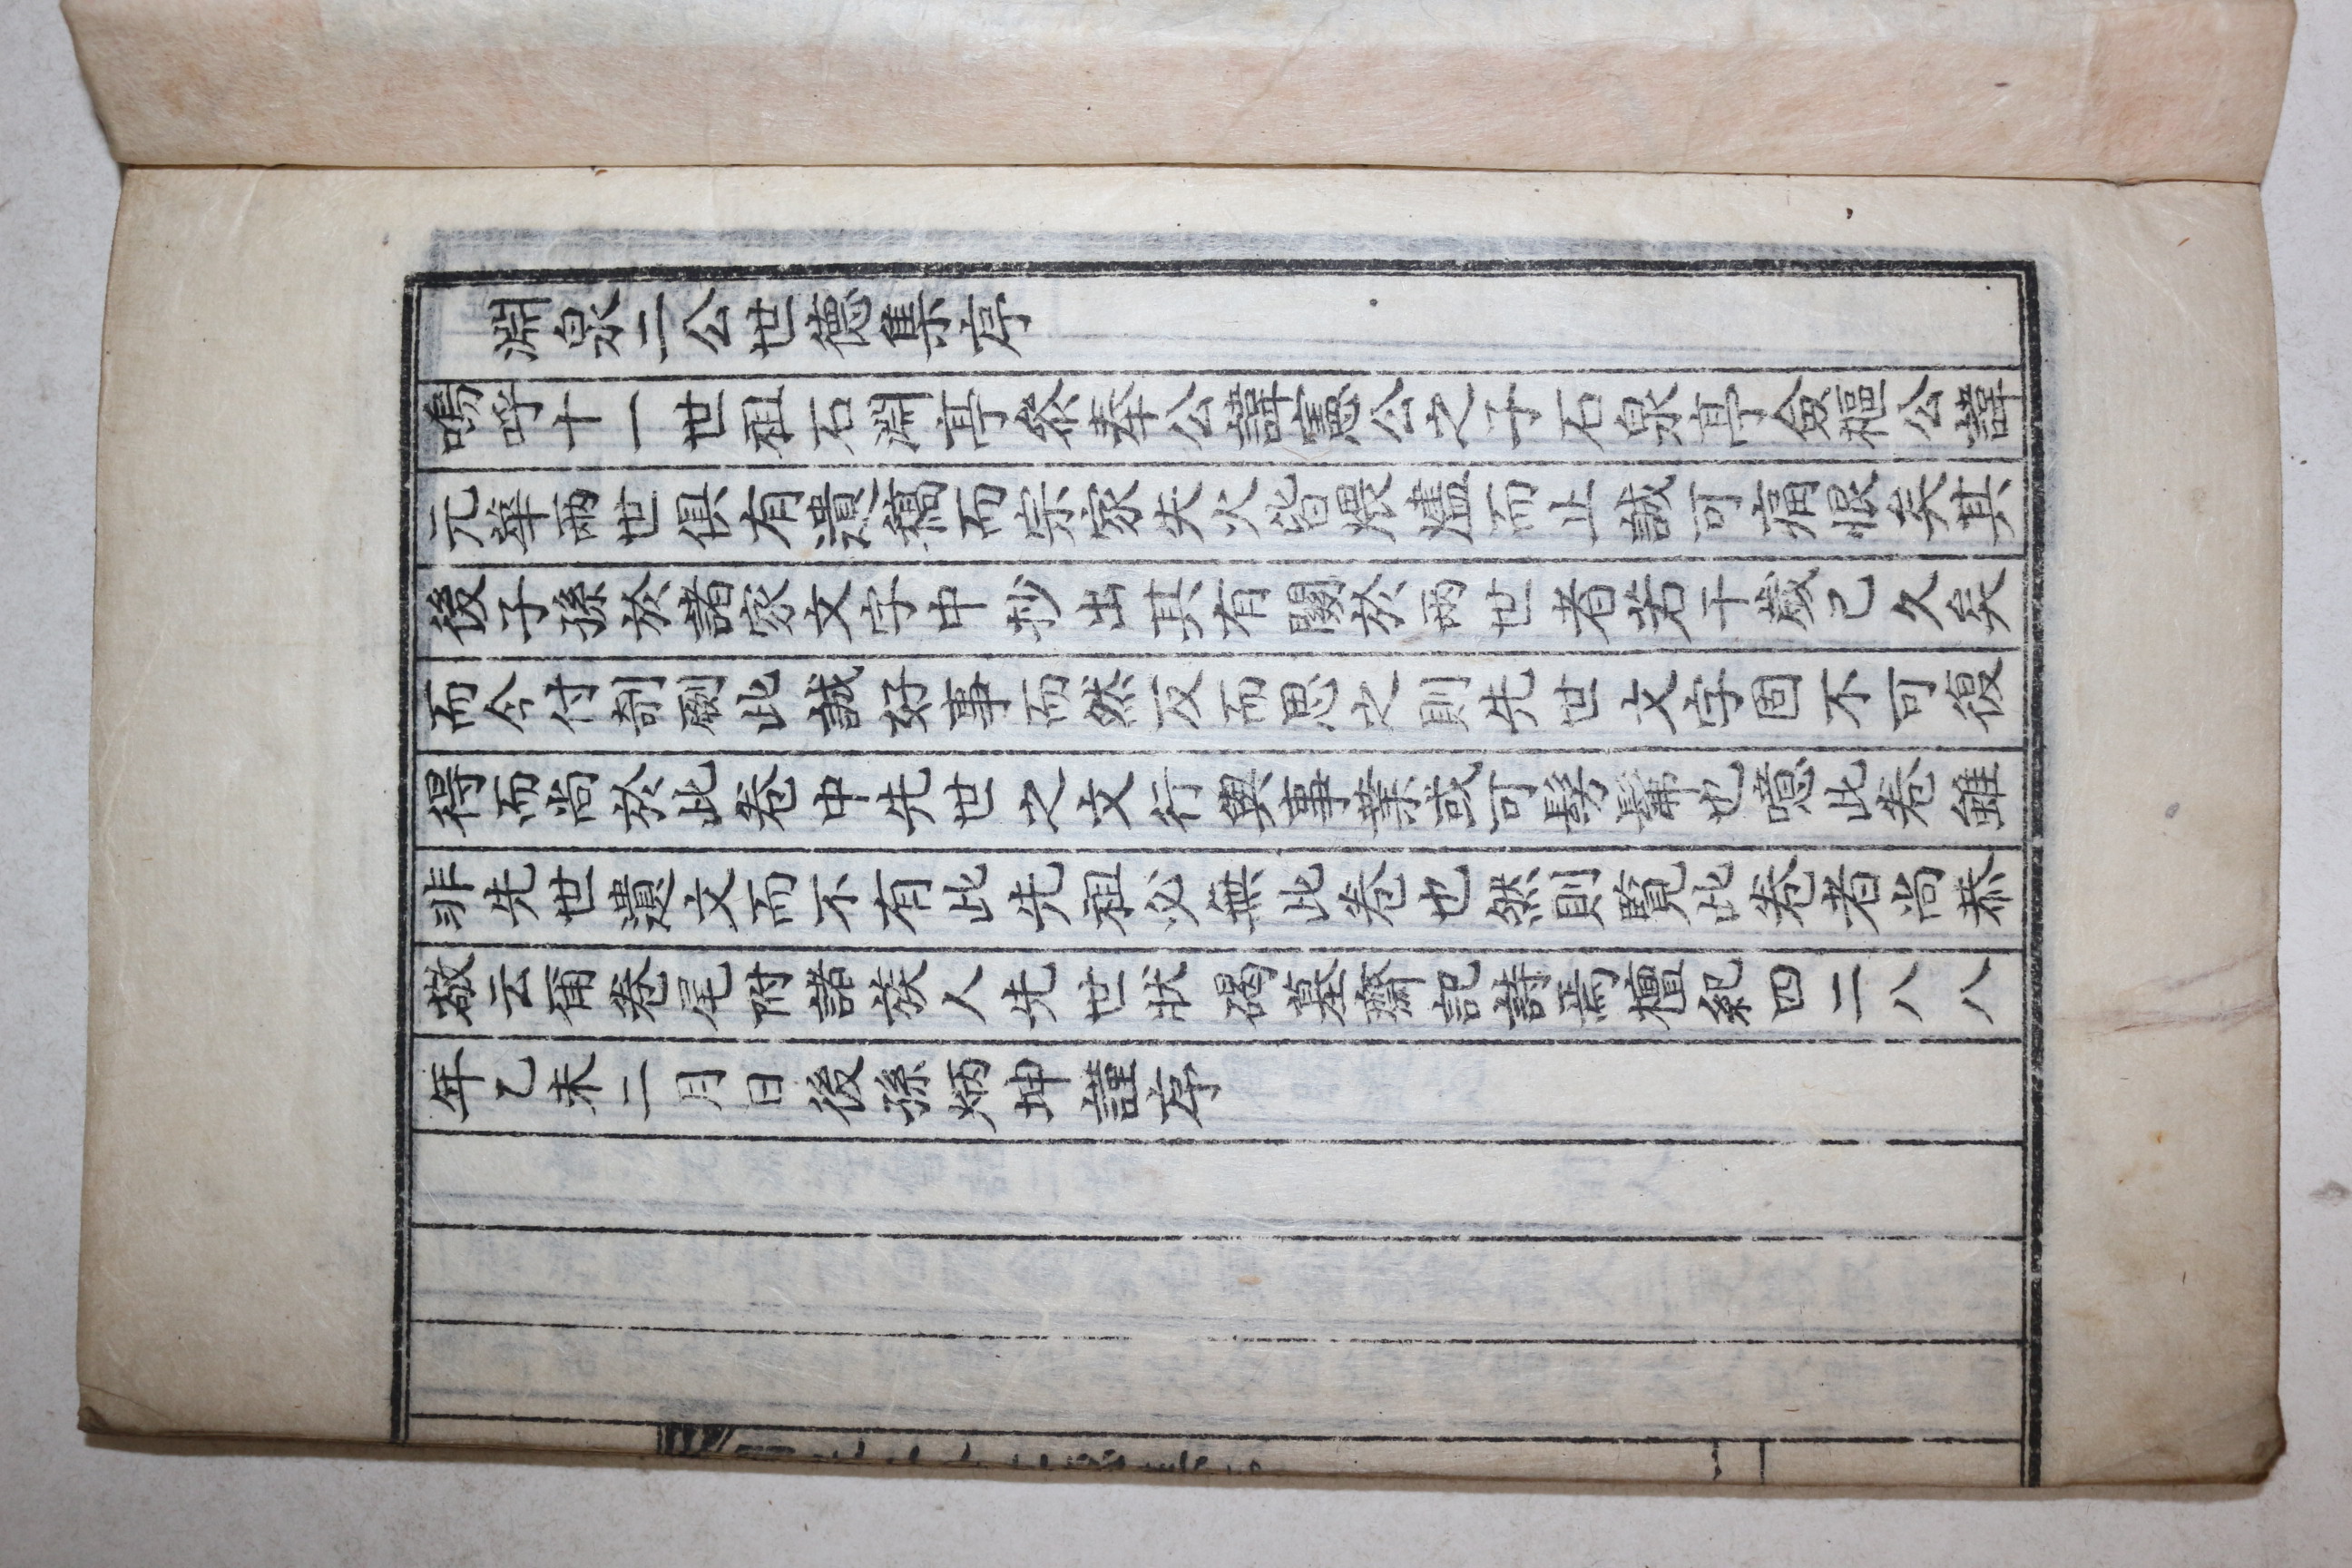 淵泉二公世德集序
嗚呼十一世祖石淵亭叅奉公諱憲公之子石泉亭僉樞公諱
元華兩世俱有遺稿而宗家失火皆煨燼而止誠可痛恨矣其
後子孫於諸家文字中抄出其有關於兩世者若干歲已久矣
而今付剞劂此誠好事而然反而思之則先世文字固不可復
得而尚於此卷中先世之文行與事業或可髣髴也噫此卷雖
非先世遺文而不有此先祖必無此卷也然則覧此卷者尚恭
敬云甭卷尾附諸族人先世狀碣墓齋記詩焉檀紀四二八八
年乙未二月日後孫炳坤謹序